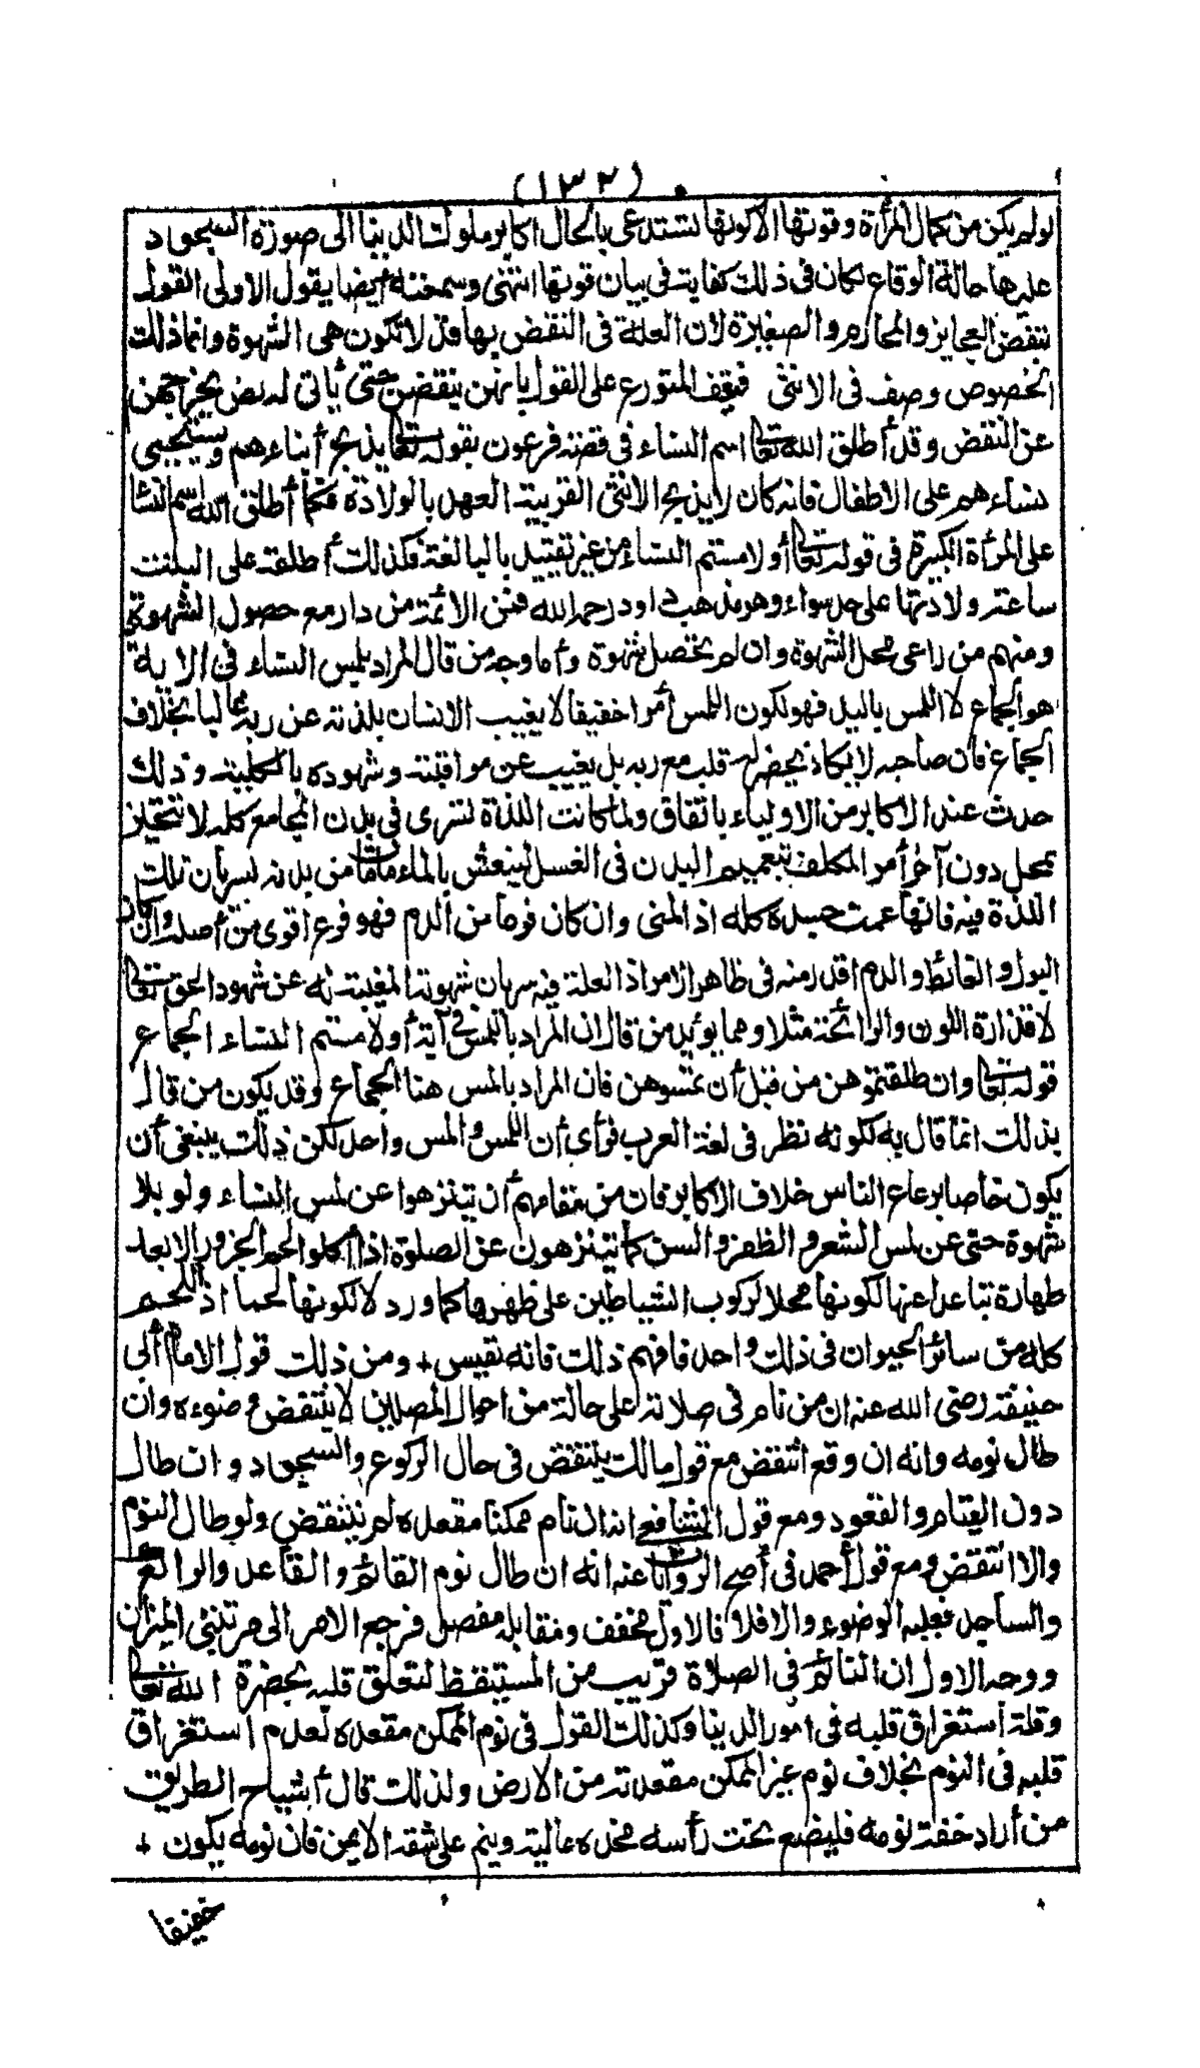 (١٣٢)
لو لم يكن من كمال المرأة وقوتها الا كونها تستدعى بالحال اكابر ملوك الدنيا الى صورة السجود
عليها حالة الوقاع لكان فى ذلك كفاية فى بيان قوتها انتهى وسمعته أيضا يقول الاولى القول
بنقض العجايز والمحارم والصغيرة لان العلة فى النقض بها قد لا تكون هى الشهوة وانما ذلك
لخصوص وصف فى الانثى فيقف المتورع على القول بانهن ينقضن حتى يأتى له نص يخرجهن
عن النقض وقد أطلق الله تعالى اسم النساء فى قصة فرعون بقوله تعالى يذبح أبناءهم ويستحيى
نساءهم على الاطفال فانه كان لا يذبح الانثى القريبة العهد بالولادة فكما أطلق الله اسم النسا
على المرأة الكبيرة فى قوله تعالى أو لامستم النساء من غير تقييد بالبالغة فكذلك أطلقه على البنت
ساعة ولادتها على حد سواء وهو مذهب داود رحمه الله فمن الائمة من دار مع حصول الشهوة
ومنهم من راعى محل الشهوة وان لم يحصل شهوة وأما وجه من قال المراد بلمس النساء فى الاية
هو الجماع لا اللمس باليد فهو لكون اللمس أمرا خفيفا لا يغيب الانسان بلذته عن ربه غالبا بخلاف
الجماع فان صاحبه لا يكاد يحضر له قلب مع ربه بل يغيب عن مراقبته وشهوده بالكلية وذلك
حدث عند الاكابر من الاولياء باتفاق ولما كانت اللذة تسرى فى بدن المجامع كله لا تتحيز
بمحل دون آخر أمر المكلف بتعميم البدن فى الغسل لينعش بالماء ما مات من بدنه لسريان تلك
اللذة فيه فانها عمت جسده كله اذ المنى وان كان نوعا من الدم فهو فرع اقوى من أصله وان كان
البول والغائط والدم اقذر منه فى ظاهر الامر اذ العلة فيه سريان شهوته المغيبة له عن شهود الحق تعالى
لا قذارة اللون والرائحة مثلا ومما يؤيد من قال ان المراد باللمس فى آية أو لامستم النساء الجماع
قوله تعالى وان طلقتموهن من قبل أن تمسوهن فان المراد بالمس هنا الجماع وقد يكون من قال
بذلك انما قال به لكونه نظر فى لغة العرب فرأى أن اللمس والمس واحد لكن ذلك ينبغى أن
يكون خاصا برعاع الناس خلاف الاكابر فان من مقامهم أن يتنزهوا عن لمس النساء ولو بلا
شهوة حتى عن لمس الشعر والظفر والسن كما يتنزهون عن الصلوة اذا أكلوا لحم الجزور الا بعد
طهارة تباعدا عنها لكونها محلا لركوب الشياطين على ظهرها كما ورد لا لكونها لحما اذ اللحم
كله من سائر الحيوان فى ذلك واحد فافهم ذلك فانه نفيس + ومن ذلك قول الامام أبى
حنيفة رضى الله عنه ان من نام فى صلاته على حالة من احوال المصلين لا ينتقض وضوءه وان
طال نومه وانه ان وقع انتقض مع قول مالك ينتقض فى حال الركوع والسجود وان طال
دون القيام والقعود ومع قول الشافعى انه ان نام ممكنا مقعده لم ينتقض ولو طال النوم
والا انتقض ومع قول أحمد فى أصح الروايات عنه انه ان طال نوم القائم والقاعد والراكع
والساجد فعليه الوضوء والا فلا فالاول مخفف ومقابله مفصل فرجع الامر الى مرتبتى الميزان
ووجه الاول ان النائم فى الصلاة قريب من المستيقظ لتعلق قلبه بحضرة الله تعالى
وقلة استغراق قلبه فى امور الدنيا وكذلك القول فى نوم الممكن مقعده لعدم استغراق
قلبه فى النوم بخلاف نوم غير الممكن مقعدته من الارض ولذلك قال أشياخ الطريق
من أراد خفة نومه فليضع تحت رأسه مخدة عالية وينم على شقه الايمن فان نومه يكون +
خفيفا